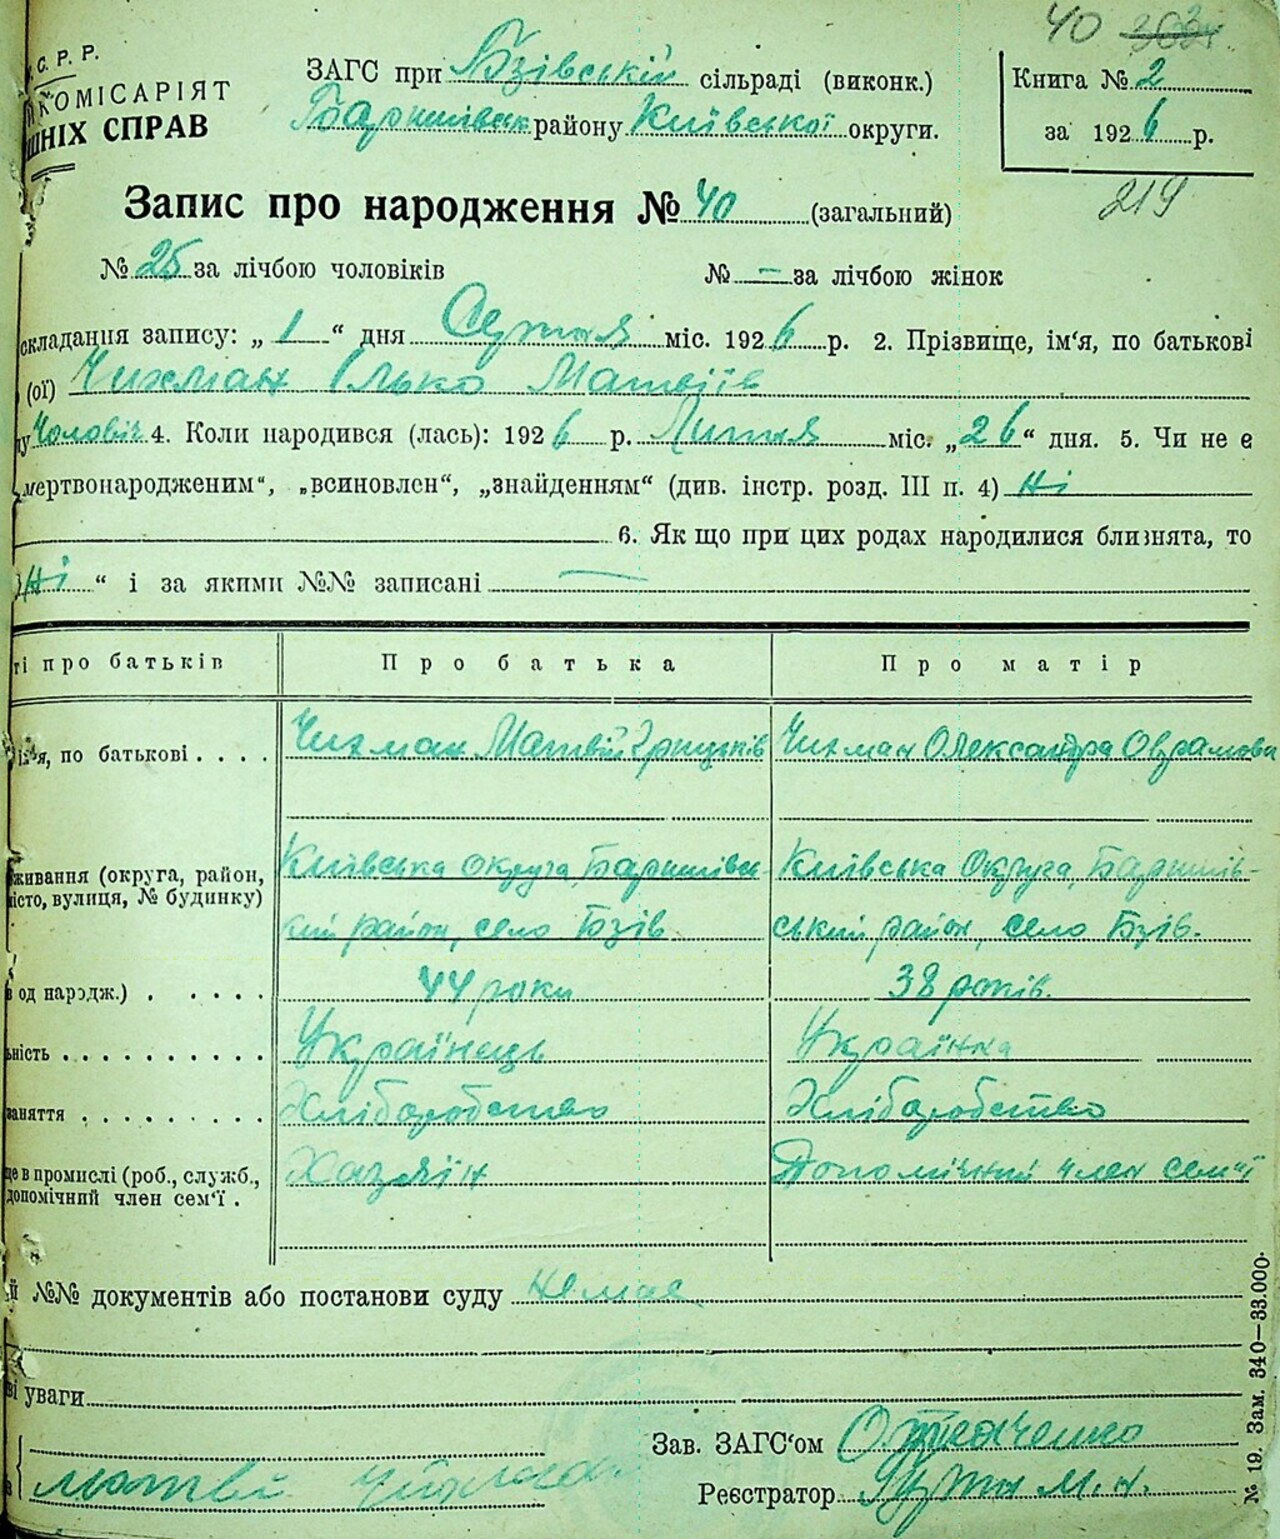 40 303
С. Р. Р.
КОМІСАРІЯТ
ШНІХ СПРАВ
ЗАГС при Бзівській сільраді (виконк.)
Баришівськ району Київської округи.
Книга № 2
за 1926 р.
219
Запис про народження № 40 (загальний)
№ 25 за лічбою чоловіків № — за лічбою жінок
складання запису: „ 1 “ дня Серпня міс. 1926 р. 2. Прізвище, ім‘я, по батькові
(ої) Чихман Ілько Матвіїв
Чоловіч 4. Коли народився (лась): 1926 р. Липня міс. „26“ дня. 5. Чи не є
мертвонародженим“, „всиновлен“, „знайденням“ (див. інстр. розд. III п. 4) Ні
6. Як що при цих родах народилися близнята, то
Ні “ і за якими №№ записані —
ті про батьків Про батька Про матір
ім‘я, по батькові . . . . Чихман Матвій Чихман Олександра Оврамова
живання (округа, район, Київська округа, Баришівсь- Київська Округа, Баришів-
істо, вулиця, № будинку) кий район, село Бзів ський район, село Бзів.
од народж.) . . . . . 44 роки 38 років.
ьність . . . . . . . . . . Українець Українка
заняття . . . . . . . . . Хліборобство Хліборобство
ще в промислі (роб., служб., Хазяїн Допомічний член сем'ї
допомічний член сем‘ї .
й №№ документів або постанови суду немає
ві уваги
Зав. ЗАГС‘ом О. Ткаченко
Матвій Чихман
Реєстратор
№ 19. Зам. 340—33.000.